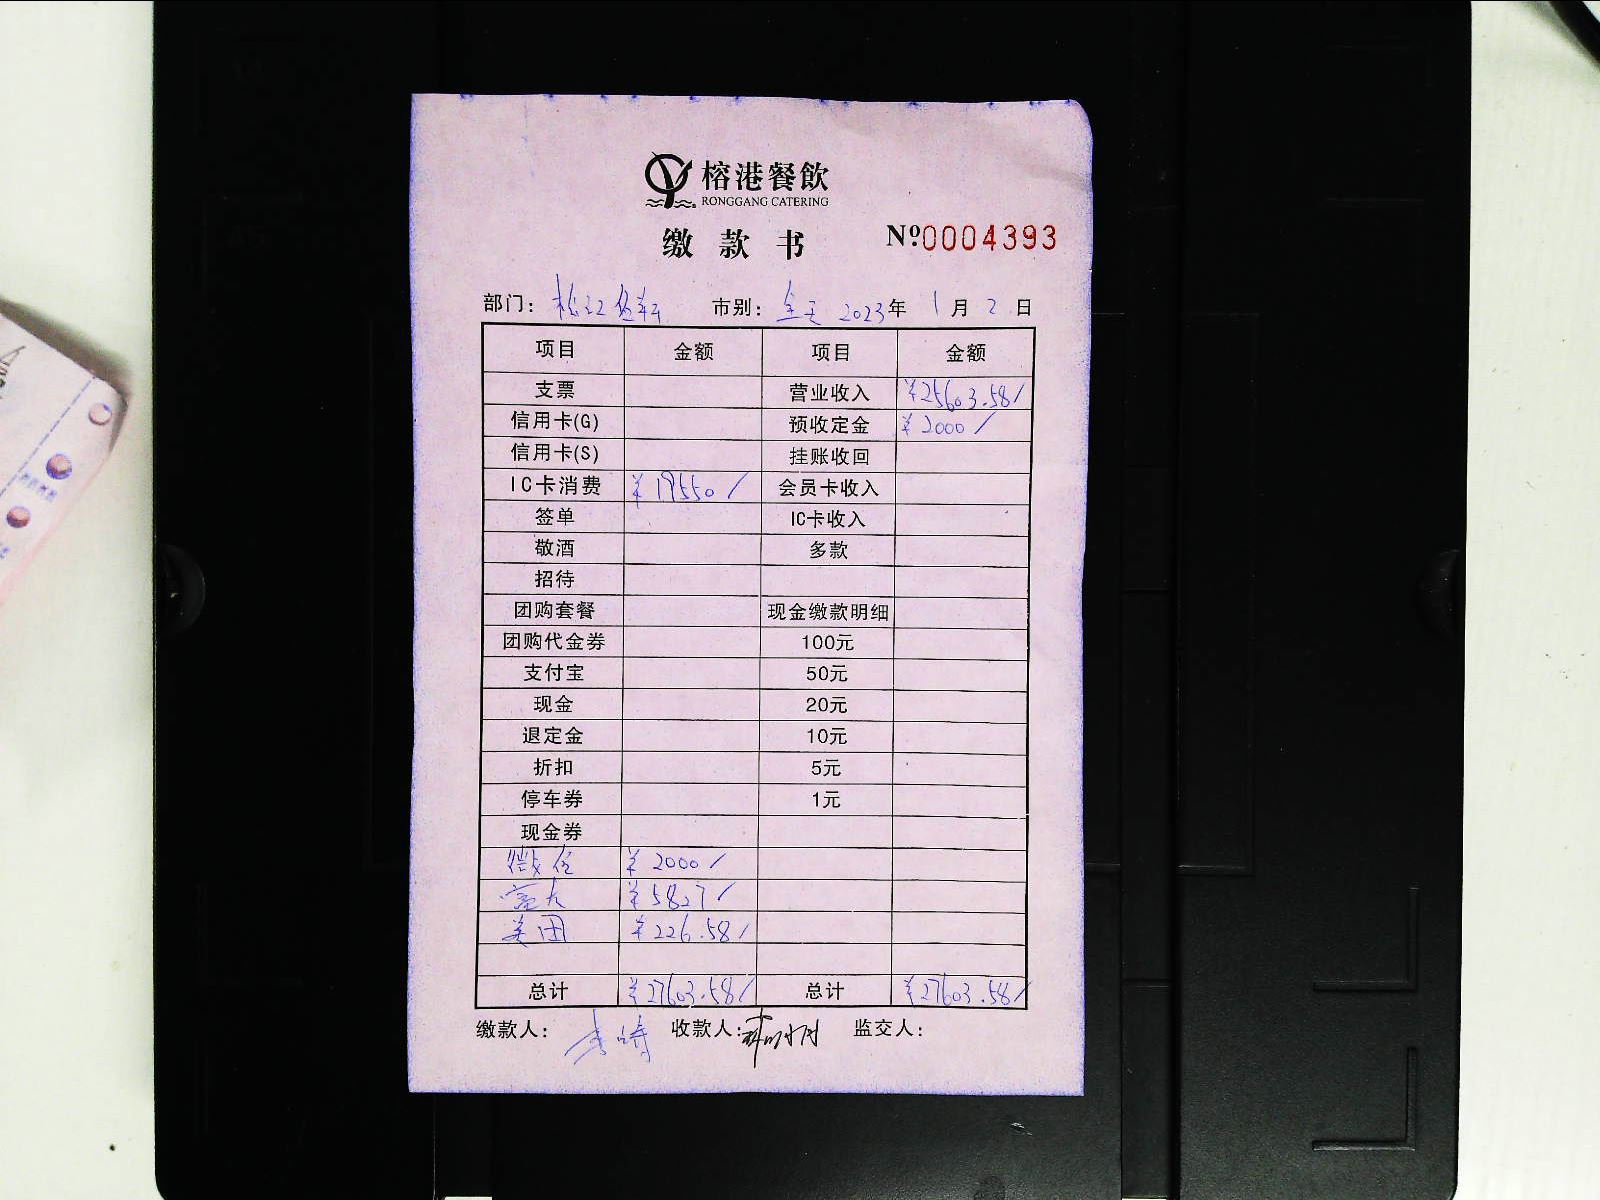 榕港餐飲
RONGGANG CATERING
缴款书 №0004393
部门： 松江 市别： 全天 2023年 1月 2日
项目 金额 项目 金额
支票 营业收入 ¥25603.58/
信用卡(G) 预收定金 ¥2000/
信用卡(S) 挂账收回
IC卡消费 ¥19550/ 会员卡收入
签单 IC卡收入
敬酒 多款
招待
团购套餐 现金缴款明细
团购代金券 100元
支付宝 50元
现金 20元
退定金 10元
折扣 5元
停车券 1元
现金券
微信 ¥2000/
¥5827/
美团 ¥226.58/
总计 ¥27603.58/ 总计 ¥27603.58/
缴款人： 收款人： 监交人：